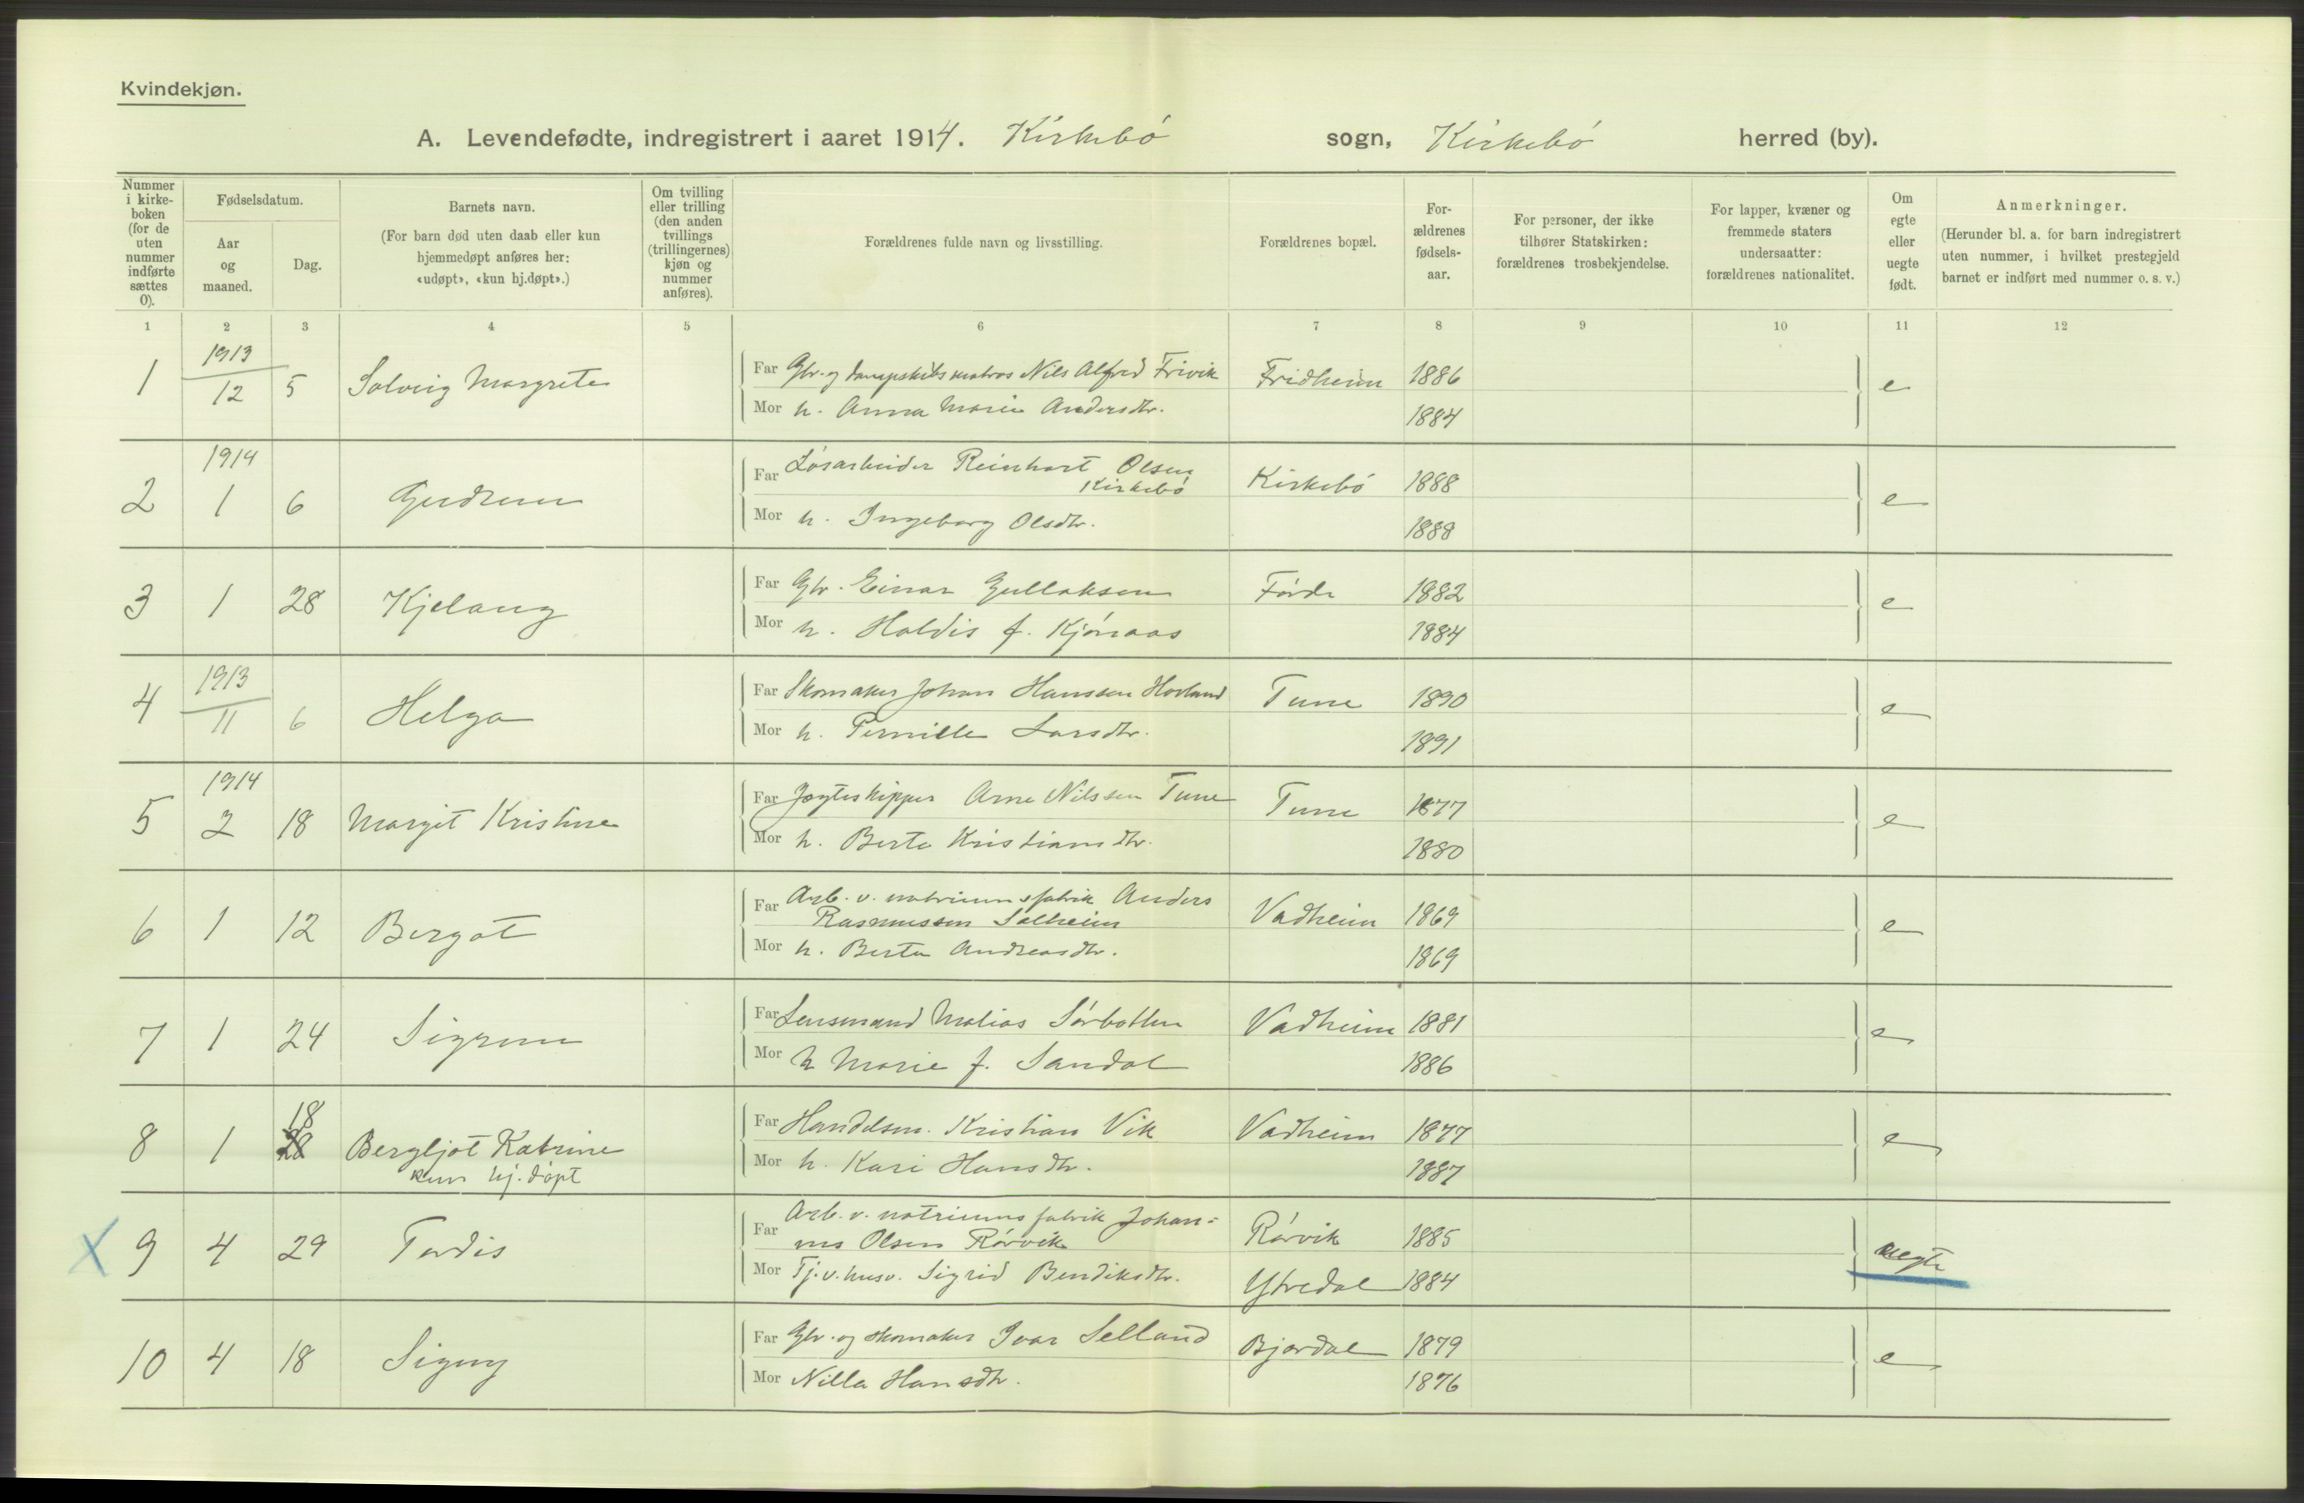 Kvindekjøn.
A. Levendefødte, indregistrert i aaret 1914. Kirkebø sogn, Kirkebø herred (by).
Nummer i kirke-boken (for de uten nummer indførte sættes 0).
Fødselsdatum.
Aar og maaned.
Dag.
Barnets navn.
(For barn død uten daab eller kun hjemmedøpt anføres her: «udøpt», «kun hj.døpt».)
Om tvilling eller trilling (den anden tvillings (trillingernes) kjøn og nummer anføres).
Forældrenes fulde navn og livsstilling.
Forældrenes bopæl.
For-ældrenes fødsels-aar.
For personer, der ikke tilhører Statskirken: forældrenes trosbekjendelse.
For lapper, kvæner og fremmede staters undersaatter: forældrenes nationalitet.
Om egte eller uegte født.
Anmerkninger.
(Herunder bl. a. for barn indregistrert uten nummer, i hvilket prestegjeld barnet er indført med nummer o. s. v.)
1 2 3 4 5 6 7 8 9 10 11 12
1913
1 12 5 Solveig Margrete Far Gbr. og dampskibsmatros Nils Alfred Frivik Fridheim 1886 e
Mor h. Anna Marie Andersdtr. 1884
1914
2 1 6 Gudrun Far Løsarbeider Reinhart Olsen Kirkebø Kirkebø 1888 e
Mor h. Ingeborg Olsdtr. 1888
3 1 28 Kjelaug Far Gbr. Einar Gullaksen Førde 1882 e
Mor h. Haldis f. Kjønaas 1884
1913
4 11 6 Helga Far Skomaker Johan Hanssen Hovland Tune 1890 e
Mor h. Pernille Larsdtr. 1891
1914
5 2 18 Margit Kristine Far Jagteskipper Arne Nilssen Tune Tune 1877 e
Mor h. Berte Kristiansdtr. 1880
6 1 12 Bergot Far Arb. v. natriumsfabrik Anders
Rasmussen Solheim Vadheim 1869 e
Mor h. Berta Andreasdtr. 1869
7 1 24 Sigrun Far Lensmand Matias Sørbotten Vadheim 1881 e
Mor h Marie f. Sandal 1886
18
8 1 28 Bergljot Katrine Far Handelsm. Kristian Vik Vadheim 1877 e
kun hj. døpt Mor h. Kari Hansdtr. 1887
X 9 4 29 Tordis Far Arb. v. natriumsfabrik Johan-
nes Olsen Rørvik Rørvik 1885 uegte
Mor Tj. v. husv. Sigrid Bendiksdtr. Ytredal 1884
10 4 18 Signy Far Gbr. og skomaker Ivar Selland Bjordal 1879 e
Mor Nilla Hansdtr. 1876